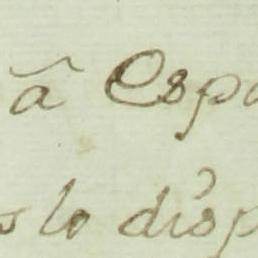 ã Espa
s lo disp